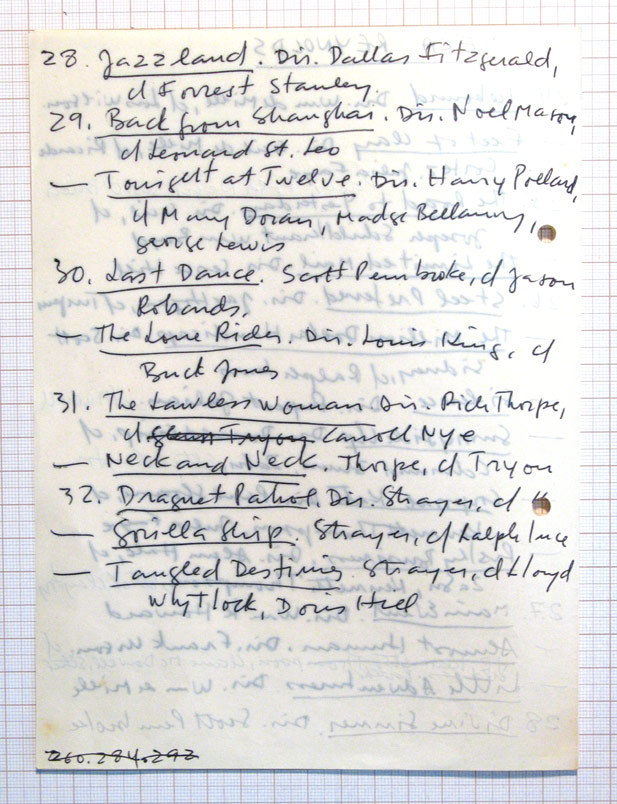 28. Jazzland. Dir. Dallas Fitzgerald,
c/ Forrest Stanley.
29. Back from Shanghai. Dir. Noel Mason,
c/ Leonard St. Leo
— Tonight at Twelve. Dir. Harry Pollard,
c/ Mary Doran, Madge Bellamy,
George Lewis
30. Last Dance. Scott Pembroke, c/ Jason
Robards.
— The Lone Rider. Dir. Louis King, c/
Buck Jones
31. The Lawless Woman Dir. Rich Thorpe,
c/ Glenn Tryon Carroll Nye
— Neck and Neck. Thorpe, c/ Tryon
32. Dragnet Patrol. Dir. Strayer, c/ "
— Gorilla Ship. Strayer, c/ Ralph Ince
— Tangled Destinies. Strayer, c/ Lloyd
Whytlock, Doris Hill
260.284.292